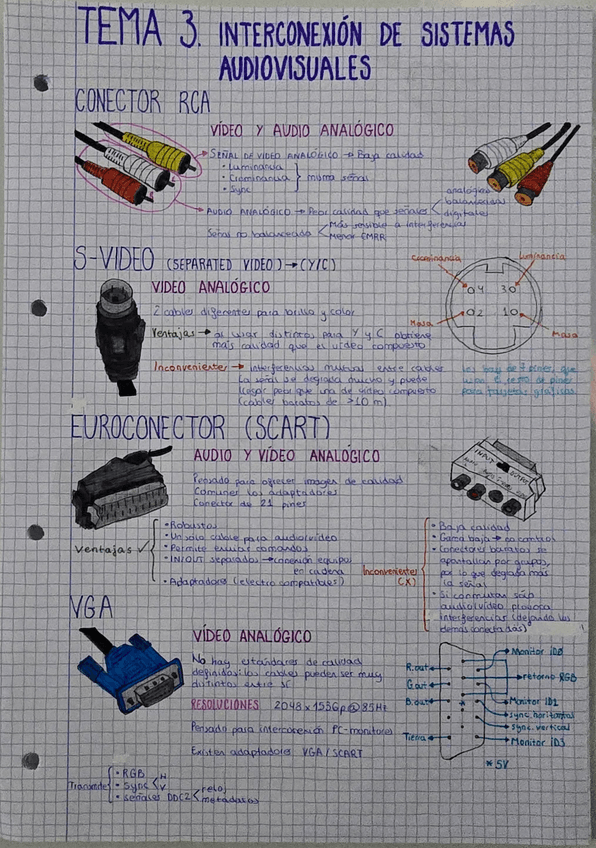 TEMA 3. INTERCONEXIÓN DE SISTEMAS
AUDIOVISUALES
CONECTOR RCA
VÍDEO Y AUDIO ANALÓGICO
SEÑAL DE VIDEO ANALÓGICO → Baja calidad
• Luminancia
• Crominancia
• Sync
misma señal
AUDIO ANALÓGICO → Peor calidad que señales
analógicas
balanceadas
digitales
Señal no balanceada
Más sensible a interferencia
Menor CMRR
S-VIDEO (SEPARATED VIDEO) → (Y/C)
VIDEO ANALÓGICO
2 cables diferentes para brillo y color
Ventajas → al usar distintos para Y y C obtiene
más calidad que el vídeo compuesto
Inconveniente → interferencias mutuas entre cables
La señal se degrada mucho y puede
llegar peor que una de vídeo compuesto
(cables baratos de >10 m)
Crominancia
Luminancia
04
30
02
10
Masa
Masa
Los hay de 7 pines, que
usan el resto de pines
para tarjetas gráficas
EUROCONECTOR (SCART)
AUDIO Y VÍDEO ANALÓGICO
Pensado para ofrecer imagen de calidad
Comunes los adaptadores
Conector de 21 pines
INPUT
OUTPUT
Ventajas ✓
• Robustos
• Un solo cable para audio/vídeo
• Permite enviar comandos
• IN/OUT separados → conexión equipos
en cadena
• Adaptadores (electro compatibles)
Inconvenientes
(X)
• Baja calidad
• Gama baja → no control
• Conectores baratos se
apantallan por grupos,
por lo que degrada más
la señal
• Si conmutas solo
audio/vídeo provoca
interferencias (dejando los
demás conectados)
VGA
VÍDEO ANALÓGICO
No hay estándares de calidad
definidos: los cables pueden ser muy
distintos entre sí
RESOLUCIONES 2048 x 1536p @ 85Hz
Pensado para interconexión PC-monitores
Existen adaptadores VGA/SCART
R.out
G.out
B.out
Tierra
Monitor ID0
retorno RGB
Monitor ID1
sync. horizontal
sync. vertical
Monitor ID3
* 5V
Transmite
• RGB
• Sync
H
V
• Señales DDC2
reloj
metadatos